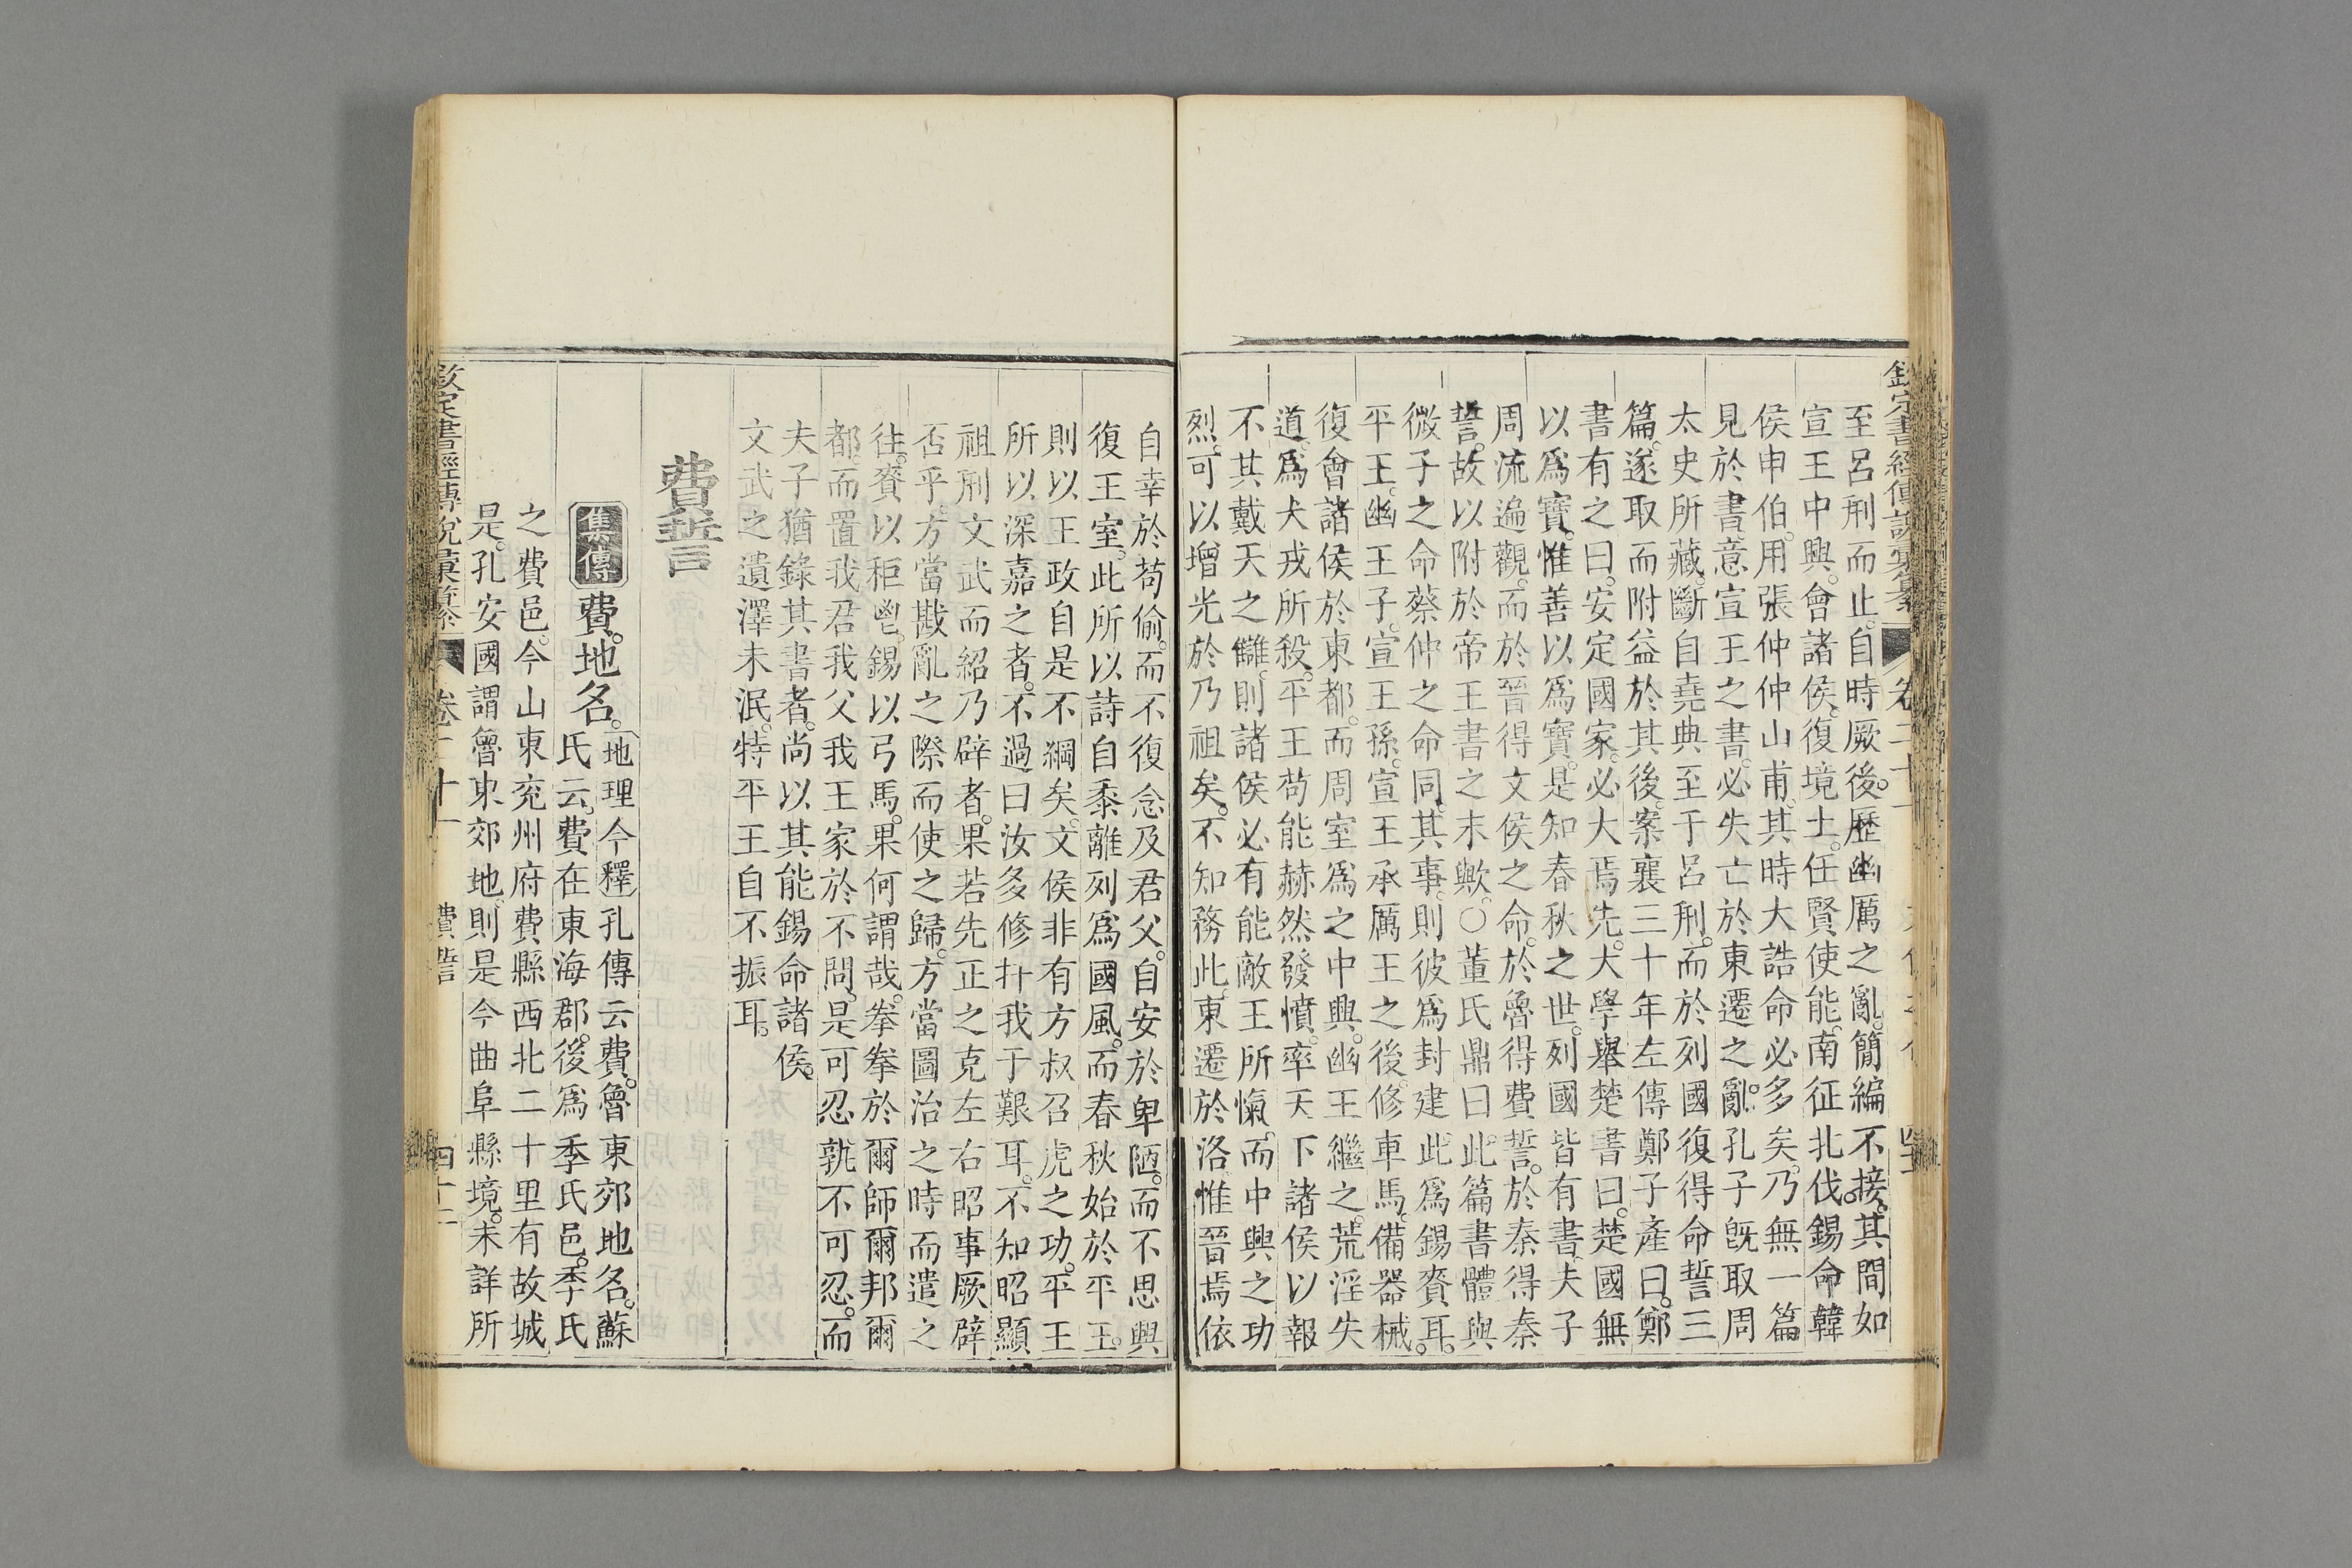 至呂刑而止。自時厥後。歷幽厲之亂。簡編不接。其間如
宣王中興。會諸侯。復境土。任賢使能。南征北伐。錫命韓
侯申伯。用張仲仲山甫。其時大誥命必多矣。乃無一篇
見於書。意宣王之書。必失亡於東遷之亂。孔子旣取周
太史所藏。斷自堯典至于呂刑。而於列國復得命誓三
篇。遂取而附益於其後。案襄三十年左傳鄭子產曰。鄭
書有之曰。安定國家。必大焉先。大學舉楚書曰。楚國無
以爲寶。惟善以爲寶。是知春秋之世。列國皆有書。夫子
周流遍觀。而於晉得文侯之命。於魯得費誓。於秦得秦
誓。故以附於帝王書之末歟。○董氏鼎曰。此篇書體與
微子之命蔡仲之命同。其事。則彼爲封建。此爲錫賚耳。
平王。幽王子。宣王孫。宣王承厲王之後。修車馬。備器械。
復會諸侯於東都。而周室爲之中興。幽王繼之。荒淫失
道。爲犬戎所殺。平王苟能赫然發憤。率天下諸侯以報
不其戴天之讎。則諸侯必有能敵王所愾。而中興之功
烈。可以增光於乃祖矣。不知務此。東遷於洛。惟晉焉依
自幸於苟偷。而不復念及君父。自安於卑陋。而不思興
復王室。此所以詩自黍離列爲國風。而春秋始於平王。
則以王政自是不綱矣。文侯非有方叔召虎之功。平王
所以深嘉之者。不過曰汝多修扞我于艱耳。不知昭顯
祖刑文武而紹乃辟者。果若先正之克左右昭事厥辟
否乎。方當戡亂之際而使之歸。方當圖治之時而遣之
往。賚以秬鬯。錫以弓馬。果何謂哉。拳拳於爾師爾邦爾
都。而置我君我父我王家於不問。是可忍孰不可忍。而
夫子猶錄其書者。尚以其能錫命諸侯。
文武之遺澤未泯。特平王自不振耳。
費誓
集傳 費。地名。地理今釋 孔傳云費。魯東郊地名。蘇
氏云。費在東海郡。後爲季氏邑。季氏
之費邑。今山東兗州府費縣西北二十里有故城
是。孔安國謂魯東郊地。則是今曲阜縣境。未詳所
欽定書經傳說彙纂 卷二十一 費誓 四十二